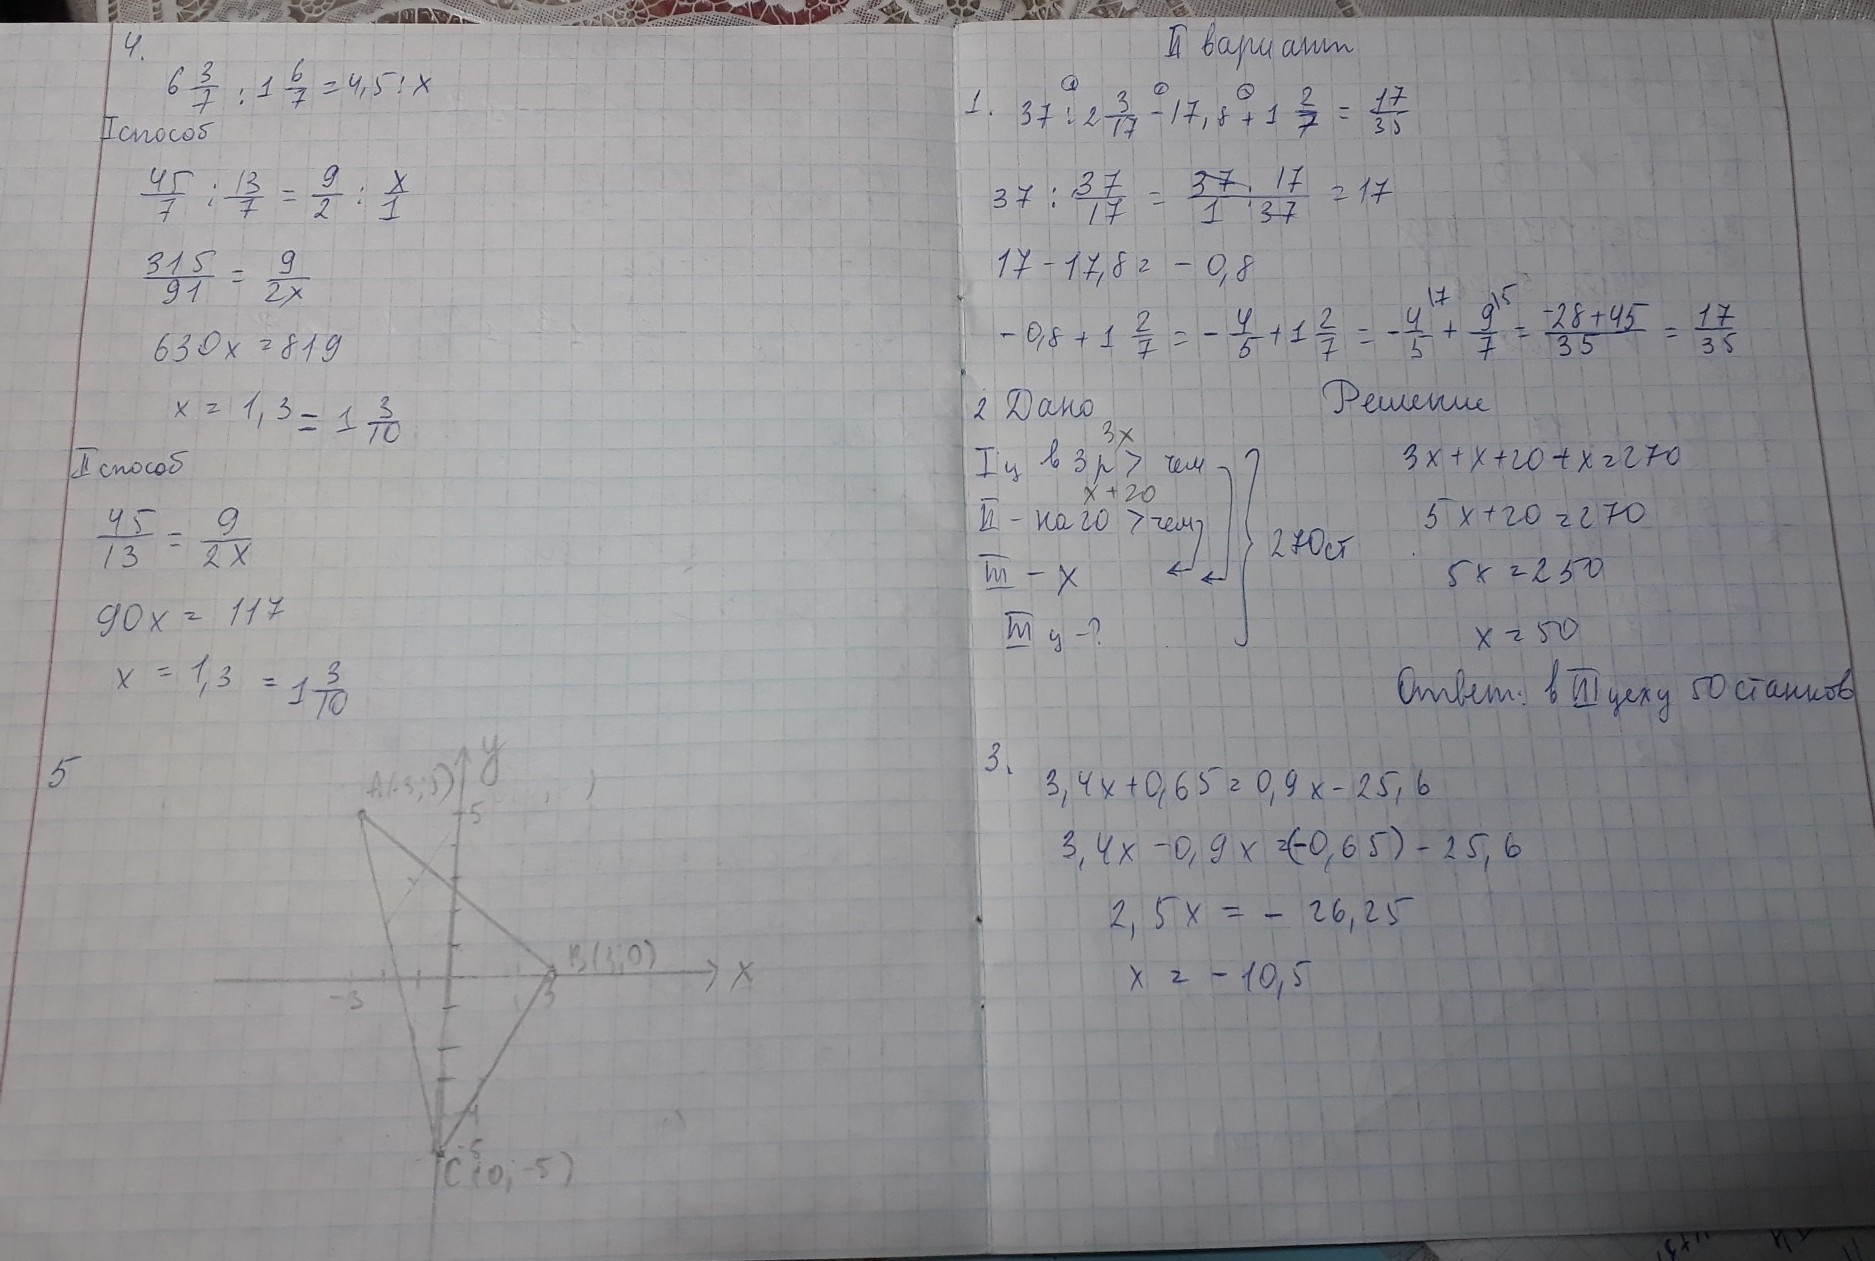 4.
6 3/7 : 1 6/7 = 4,5 : x
I способ
45/7 : 13/7 = 9/2 : x/1
315/91 = 9/2x
630x = 819
x = 1,3 = 1 3/10
II способ
45/13 = 9/2x
90x = 117
x = 1,3 = 1 3/10
5
y
A(-3;5)
5
B(3;0)
x
-3
3
-5
C(0;-5)
II вариант
1. 37 : 2 3/17 - 17,8 + 1 2/7 = 17/35
37 : 37/17 = 37 · 17/1 · 37 = 17
17 - 17,8 = - 0,8
-0,8 + 1 2/7 = - 4/5 + 1 2/7 = - 4/5 |7 + 9/7 |5 = -28+45/35 = 17/35
2 Дано
Решение
3x
I ц в 3 р > чем
x+20
II - на 20 > чем
III - x
270ст
III ц -?
3x+x+20+x=270
5x+20=270
5x=250
x=50
Ответ: в III цеху 50 станков
3.
3,4x+0,65=0,9x-25,6
3,4x-0,9x=(-0,65)-25,6
2,5x = - 26,25
x = -10,5